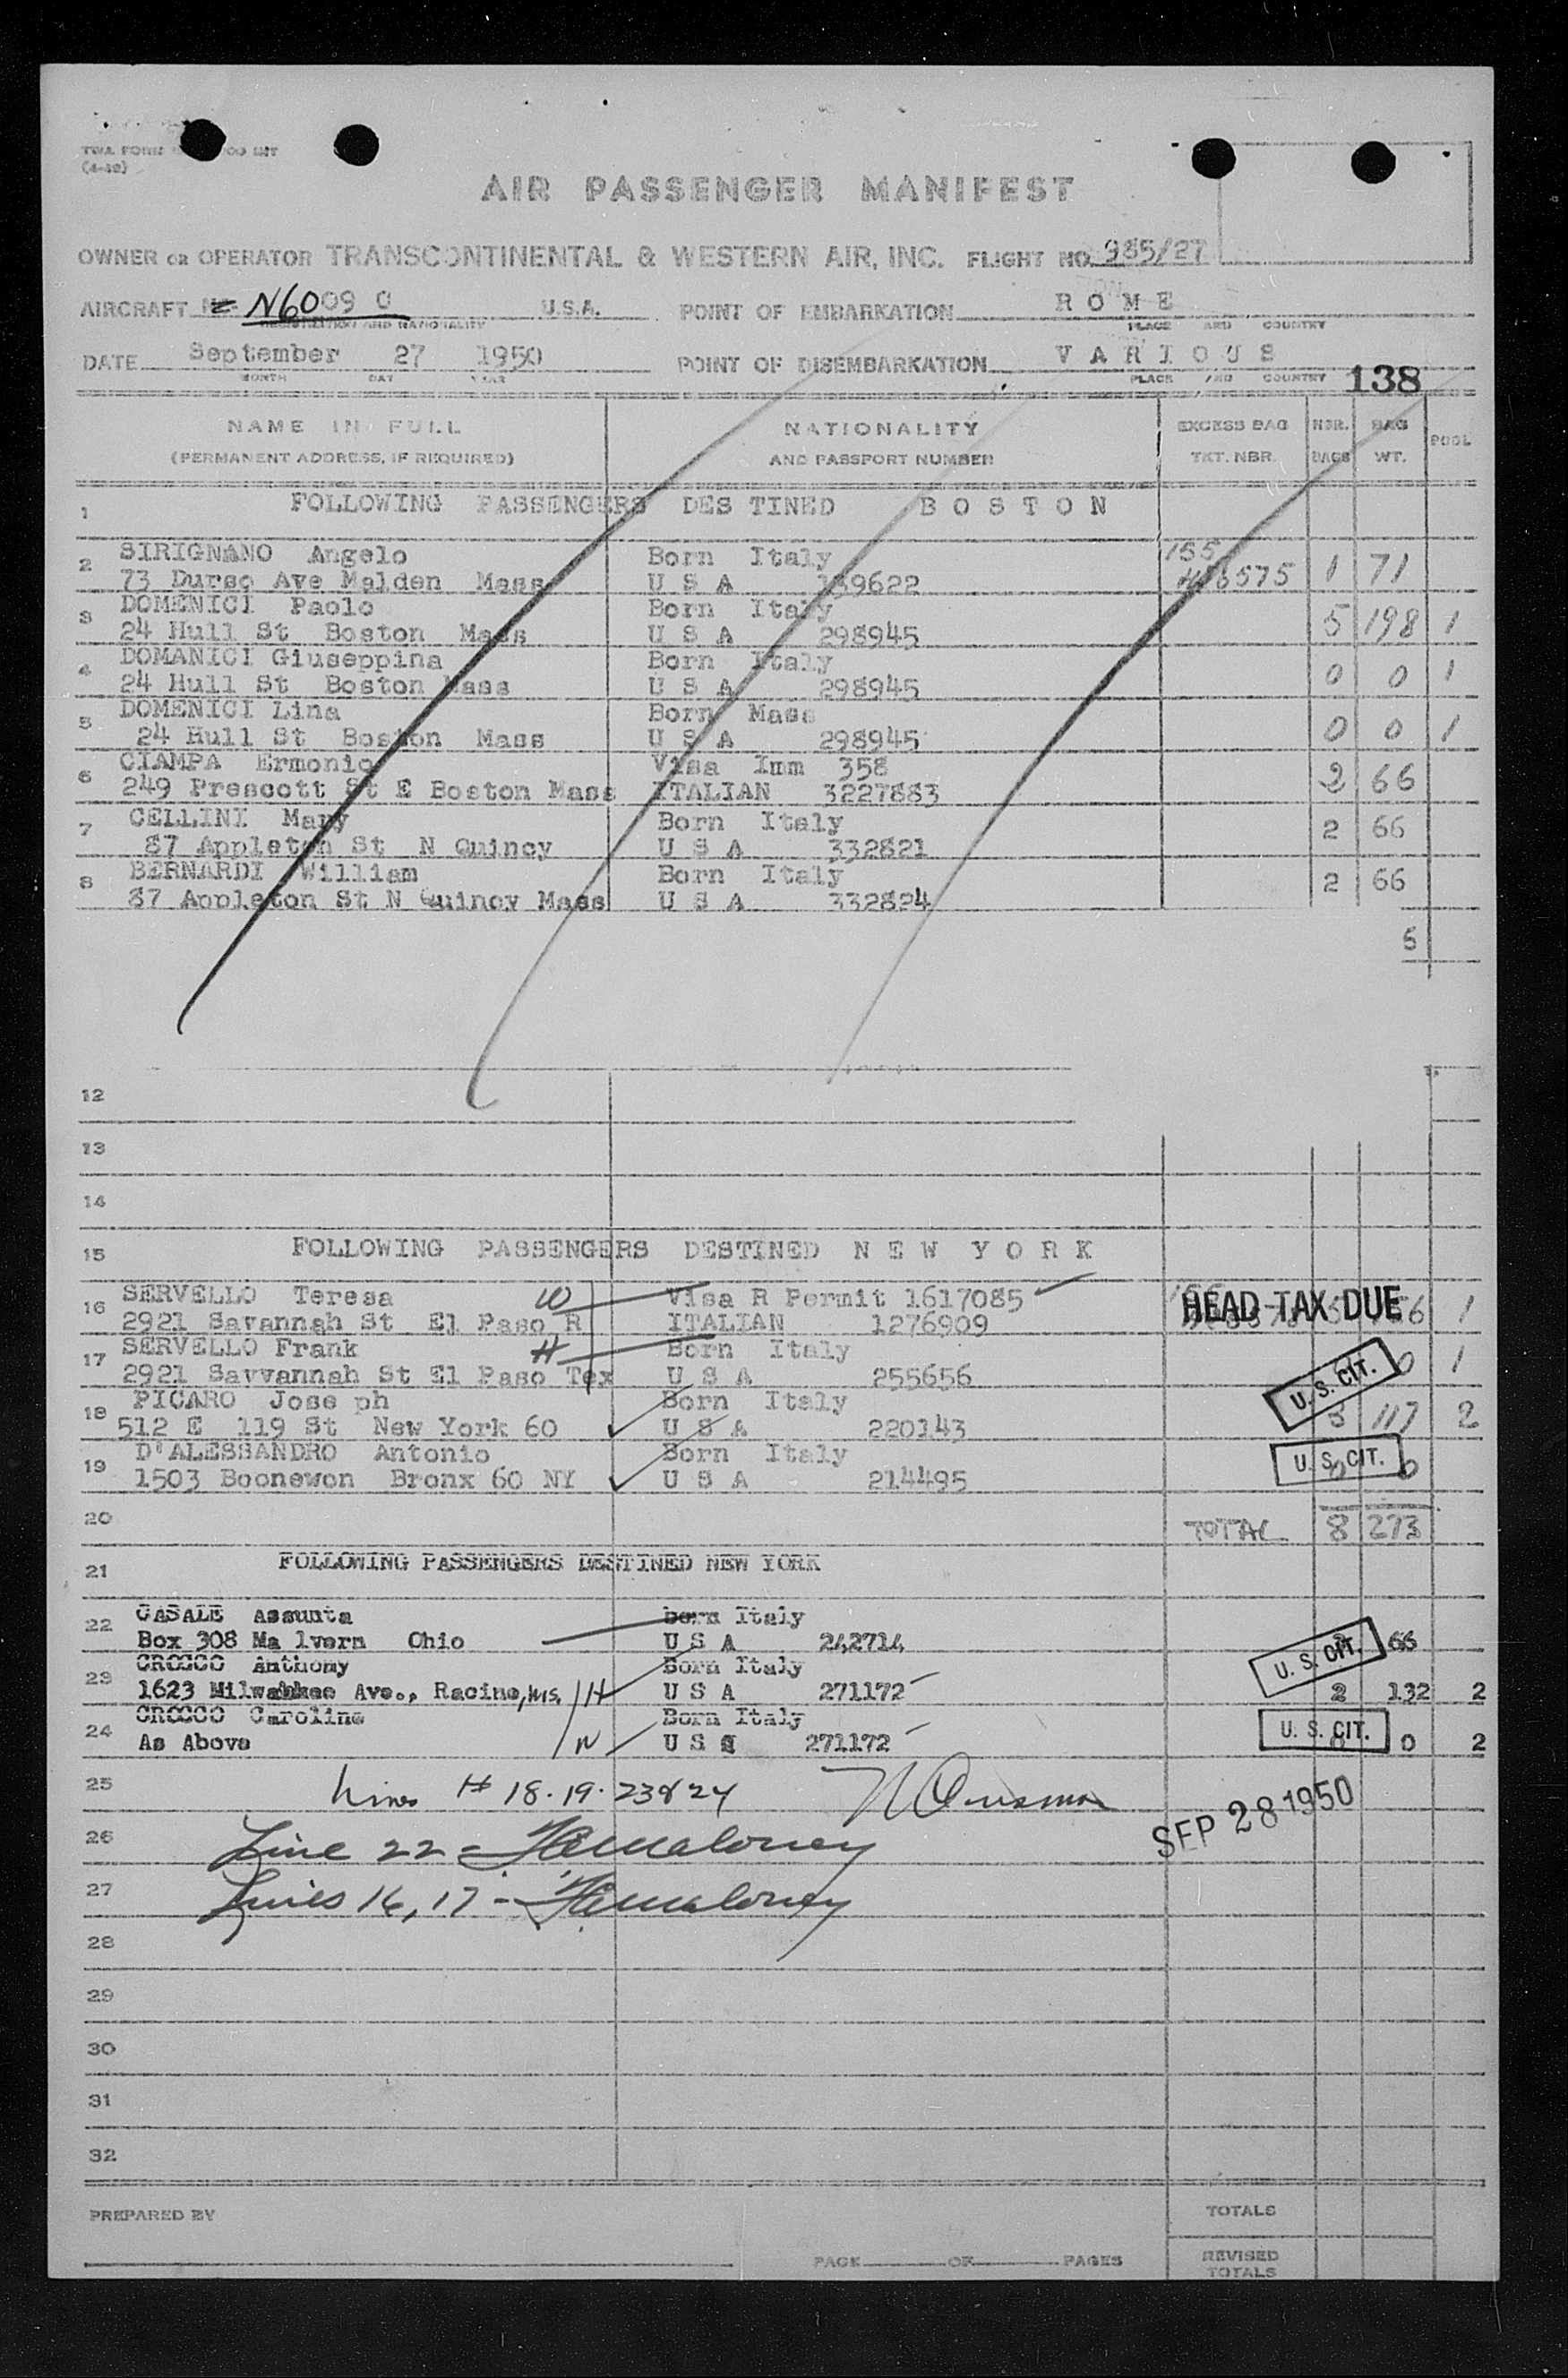 TWA FORM
(4-48)
AIR PASSENGER MANIFEST
OWNER OR OPERATOR TRANSCONTINENTAL & WESTERN AIR, INC. FLIGHT NO. 985/27
AIRCRAFT N6009 0 U.S.A. POINT OF EMBARKATION R O M E
REGISTRATION AND NATIONALITY PLACE AND COUNTRY
DATE September 27 1950 POINT OF DISEMBARKATION V A R I O U S
MONTH DAY YEAR PLACE AND COUNTRY 138
NAME IN FULL NATIONALITY EXCESS BAG NBR. BAG POOL
(PERMANENT ADDRESS, IF REQUIRED) AND PASSPORT NUMBER TKT. NBR. BAGS WT.
1 FOLLOWING PASSENGERS DES TINED B O S T O N
2 SIRIGNANO Angelo Born Italy 155
73 Durso Ave Malden Mass U S A 139622 1 71
3 DOMENICI Paolo Born Italy
24 Hull St Boston Mass U S A 298945 5 198 1
4 DOMANICI Giuseppina Born Italy
24 Hull St Boston Mass U S A 298945 0 0 1
5 DOMENICI Lina Born Mass
24 Hull St Boston Mass U S A 298945 0 0 1
6 CIAMPA Ermonio Visa Imm 358
249 Prescott St E Boston Mass ITALIAN 3227883 2 66
7 CELLINI Mary Born Italy
87 Appleton St N Quincy U S A 332821 2 66
8 BERNARDI William Born Italy
87 Appleton St N Quincy Mass U S A 332824 2 66
12
13
14
15 FOLLOWING PASSENGERS DESTINED N E W Y O R K
16 SERVELLO Teresa W Visa R Permit 1617085 HEAD TAX DUE
2921 Savannah St El Paso R ITALIAN 1276909 1
17 SERVELLO Frank H Born Italy
2921 Savvannah St El Paso Tex U S A 255656 U. S. CIT. 0 1
18 PICARO Jose ph Born Italy
512 E 119 St New York 60 U S A 220143 117 2
19 D'ALESSANDRO Antonio Born Italy
1503 Boonewon Bronx 60 NY U S A 214495 U. S. CIT. 0
20 TOTAL 8 273
21 FOLLOWING PASSENGERS DESTINED NEW YORK
22 CASALE Assunta born Italy
Box 308 Ma lvern Ohio U S A 242714 U. S. CIT. 66
23 CROCCO Anthony Born Italy
1623 Milwaukee Ave., Racine, Wis. H U S A 271172 2 132 2
24 CROCCO Caroline Born Italy
As Above W U S 271172 U. S. CIT. 0 2
25 Lines # 18. 19. 23 & 24
SEP 28 1950
26 Line 22 -
27 Lines 16, 17 -
28
29
30
31
32
PREPARED BY TOTALS
PAGE OF PAGES REVISED
TOTALS